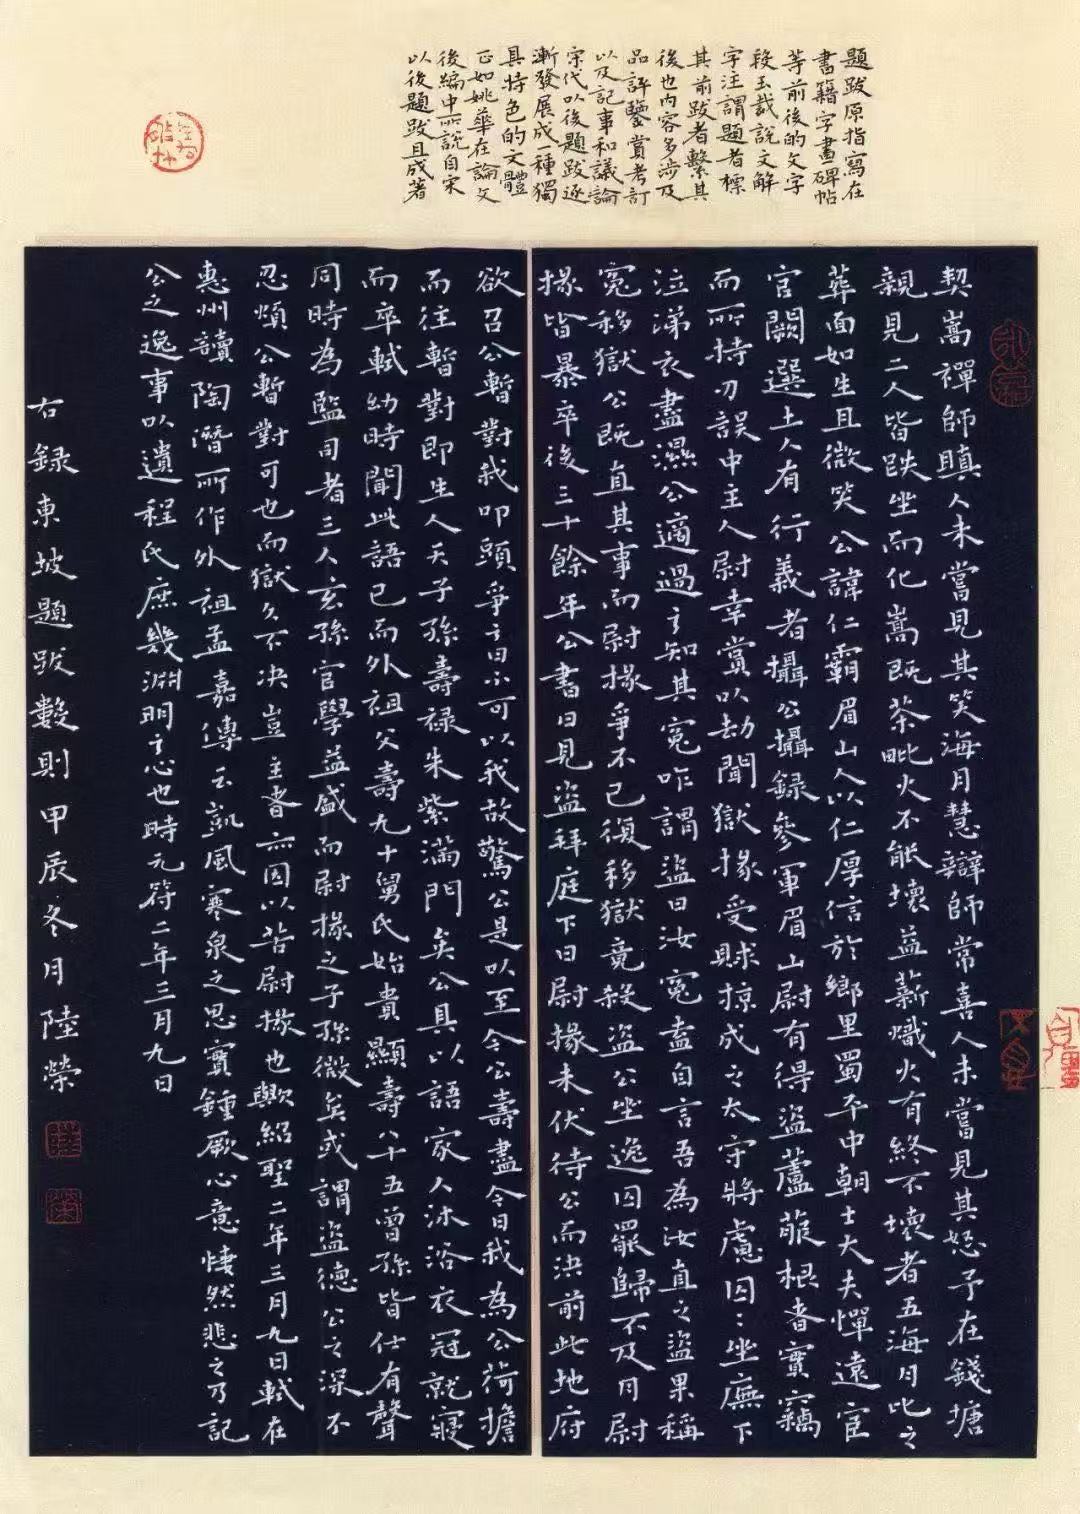 題跋原指寫在
書籍字畫碑帖
等前後的文字
段玉裁說文解
字注謂題者標
其前跋者繫其
後也內容多涉及
品評鑒賞考訂
以及記事和議論
宋代以後題跋逐
漸發展成一種獨
具特色的文體
正如姚華在論文
後編中所說自宋
以後題跋且成著
契嵩禪師瞋人未嘗見其笑海月慧辯師常喜人未嘗見其怒予在錢塘
親見二人皆趺坐而化嵩既荼毗火不能壞益薪熾火有終不壞者五海月比之
葬面如生且微笑公諱仁霸眉山人以仁厚信於鄉里蜀平中朝士大夫憚遠宦
官闕選土人有行義者攝公攝錄參軍眉山尉有得盜蘆菔根者實竊
而所持刃誤中主人尉幸賞以劫聞獄掾受賕掠成之太守將慮囚〻坐廡下
泣涕衣盡濕公適過之知其冤咋謂盜曰汝冤盍自言吾為汝直之盜果稱
冤移獄公既直其事而尉掾爭不已復移獄竟殺盜公坐逸囚罷歸不及月尉
掾皆暴卒後三十餘年公晝日見盜拜庭下曰尉掾未伏待公而決前此地府
欲召公暫對我叩頭爭之曰不可以我故驚公是以至今公壽盡今日我為公荷擔
而往暫對即生人天子孫壽祿朱紫滿門矣公具以語家人沐浴衣冠就寢
而卒軾幼時聞此語已而外祖父壽九十舅氏始貴顯壽八十五曾孫皆仕有聲
同時為監司者三人玄孫官學益盛而尉掾之子孫微矣或謂盜德公之深不
忍煩公暫對可也而獄久不決豈主者亦因以苦尉掾也歟紹聖二年三月九日軾在
惠州讀陶潛所作外祖孟嘉傳云凱風寒泉之思實鍾厥心意悽然悲之乃記
公之逸事以遺程氏庶幾淵明之心也時元符二年三月九日
右錄東坡題跋數則甲辰冬月陸榮